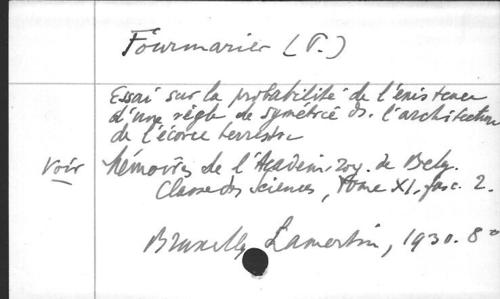 Fourmarier (P.)
Essai sur la probabilité de l'existence
d'une règle de symétrie ds. l'architecture
de l'écorce terrestre
voir Mémoires de l'Académ. roy. de Belg.
Classe des Sciences, Tome XI, fasc. 2.
Bruxelles, Lamertin, 1930. 8°